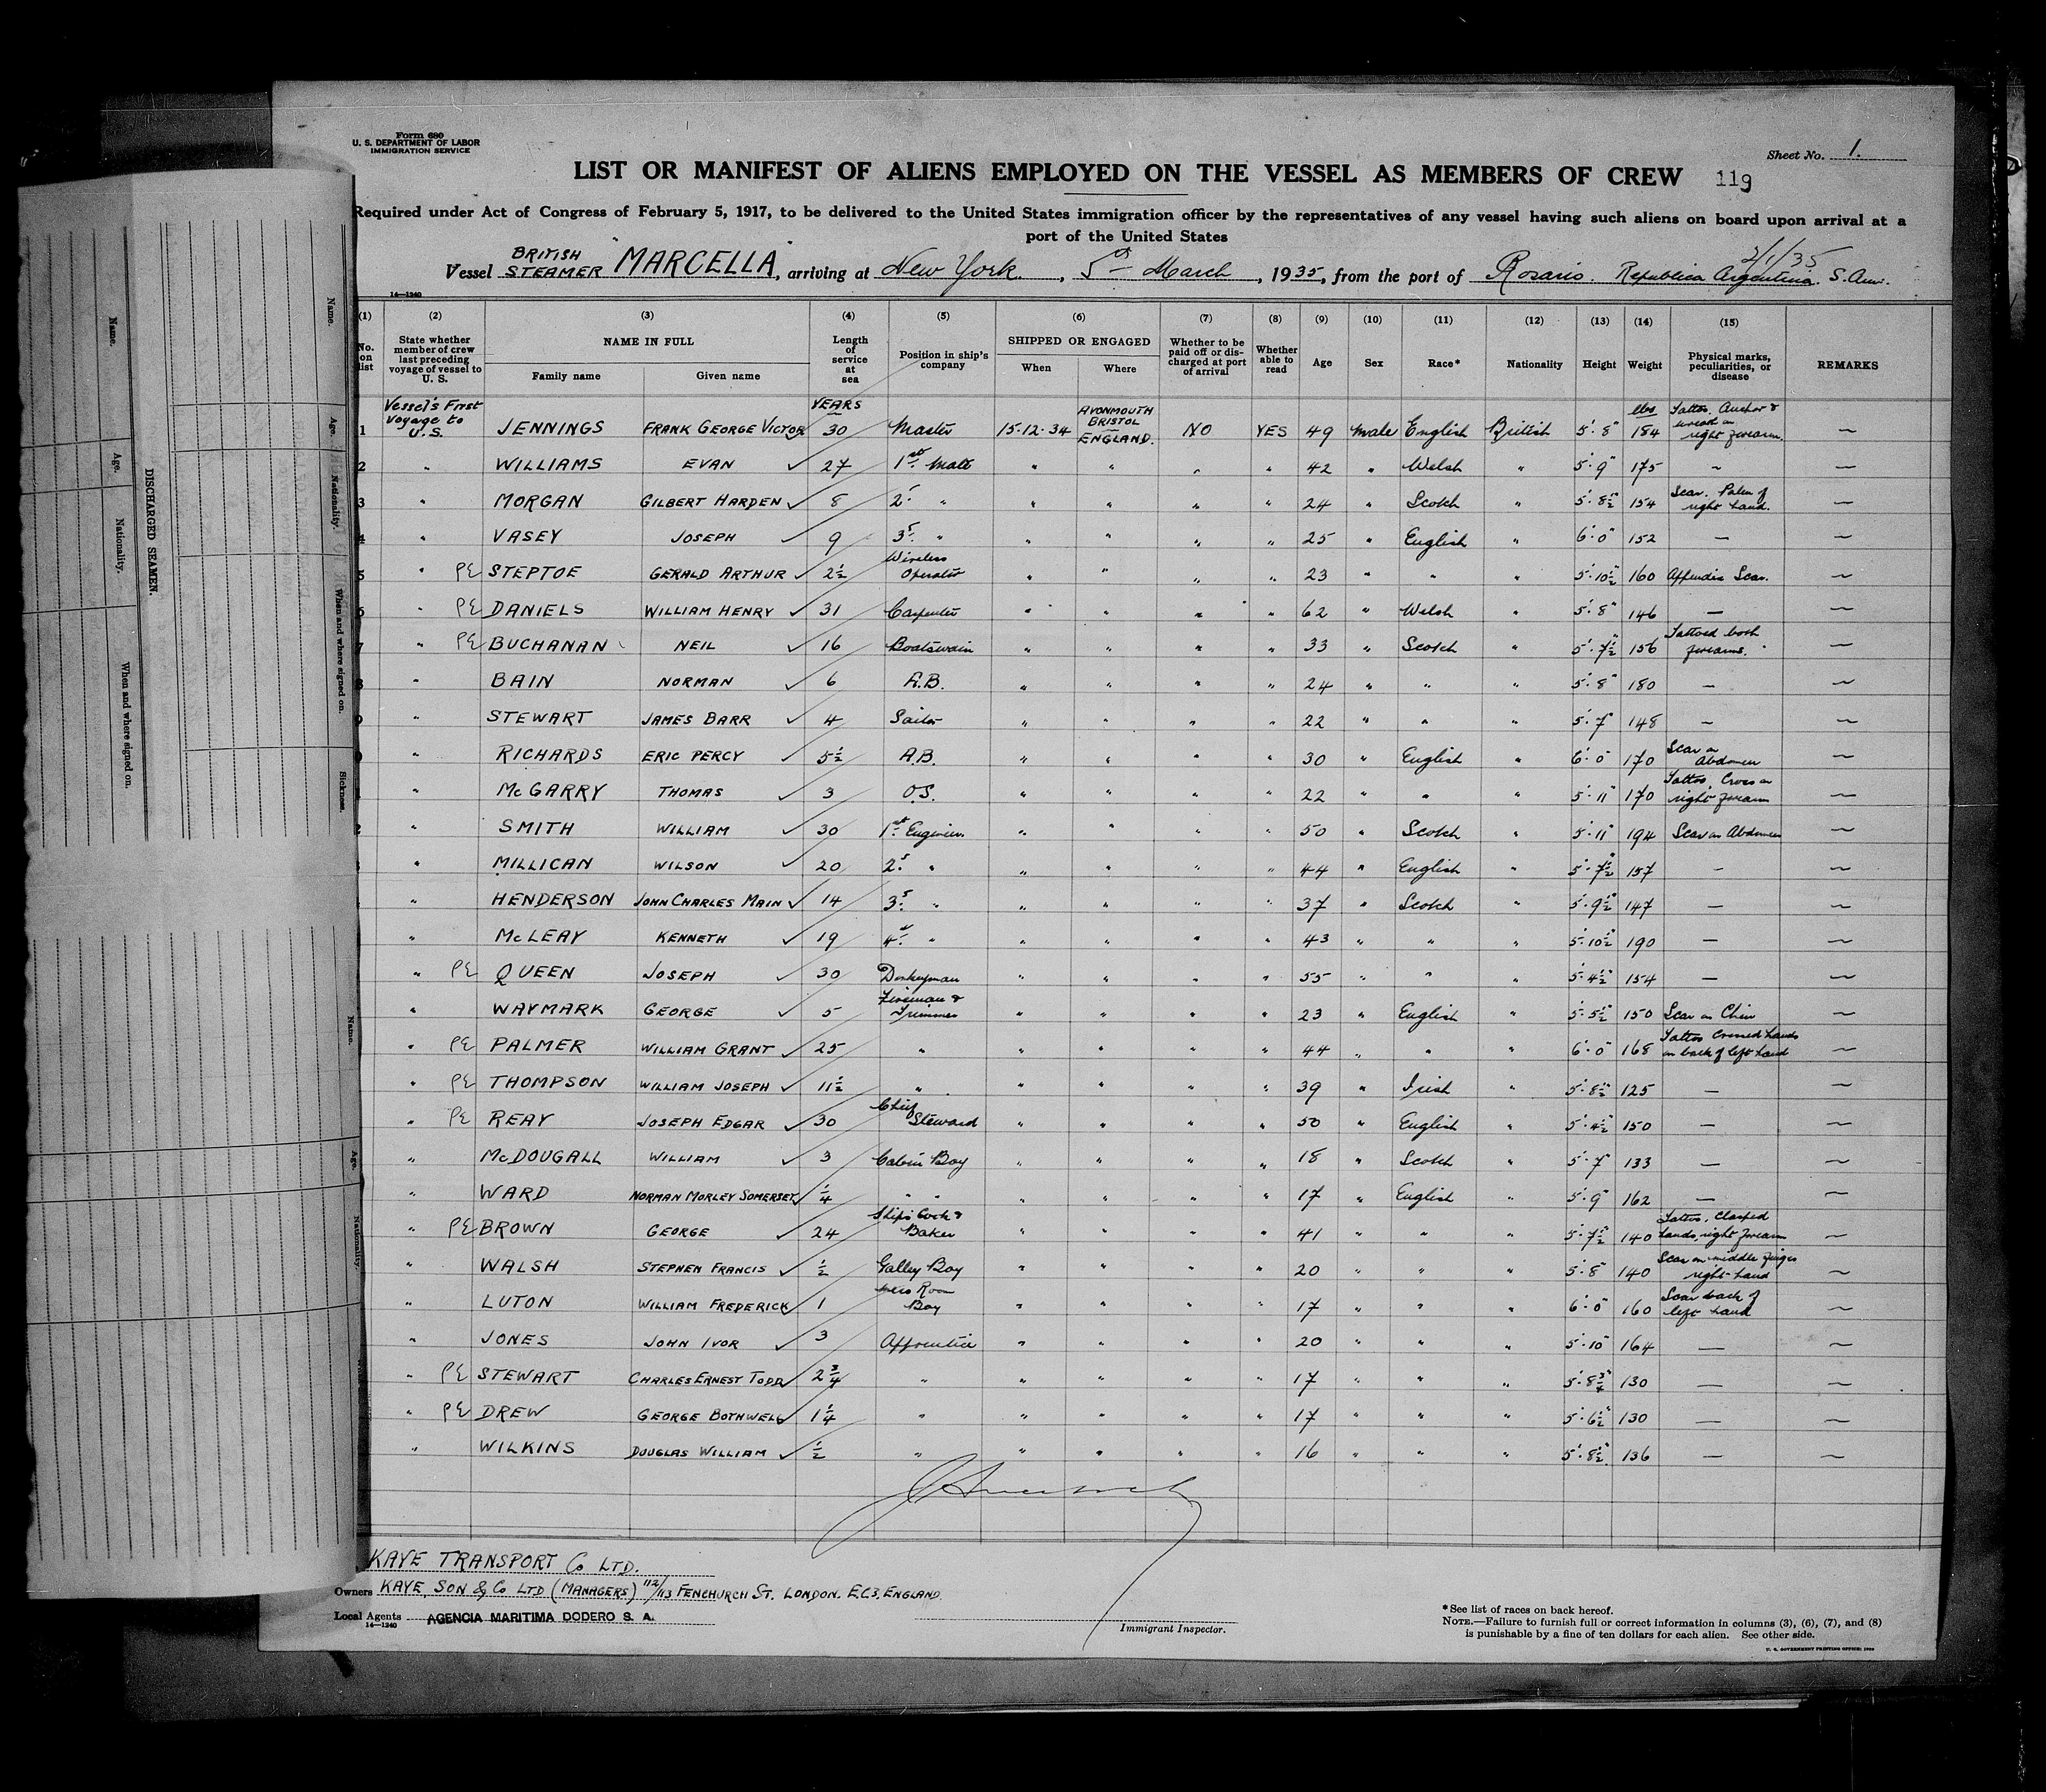 Form 680
U. S. DEPARTMENT OF LABOR
IMMIGRATION SERVICE
Sheet No. 1.
LIST OR MANIFEST OF ALIENS EMPLOYED ON THE VESSEL AS MEMBERS OF CREW 119
Required under Act of Congress of February 5, 1917, to be delivered to the United States immigration officer by the representatives of any vessel having such aliens on board upon arrival at a
port of the United States
2/1/35
Vessel BRITISH STEAMER "MARCELLA", arriving at New York, 5th March, 1935, from the port of Rosario. Republica Argentina. S. Am.
14—1240
(1) (2) (3) (4) (5) (6) (7) (8) (9) (10) (11) (12) (13) (14) (15)
No. on list State whether member of crew last preceding voyage of vessel to U. S. NAME IN FULL Family name Given name Length of service at sea Position in ship's company SHIPPED OR ENGAGED When Where Whether to be paid off or discharged at port of arrival Whether able to read Age Sex Race* Nationality Height Weight Physical marks, peculiarities, or disease REMARKS
1 Vessel's First Voyage to U.S. JENNINGS FRANK GEORGE VICTOR YEARS 30 Master 15-12-34 AVONMOUTH BRISTOL ENGLAND. NO YES 49 Male English British 5'-8" lbs 184 Tattoo. Anchor & wreath on right forearm. —
2 " WILLIAMS EVAN ✓ 27 1st Mate " " " " 42 " Welsh " 5'-9" 175 ~ —
3 " MORGAN GILBERT HARDEN ✓ 8 2. " " " " " 24 " Scotch " 5'-8½" 154 Scar. Palm of right hand. —
4 " VASEY JOSEPH ✓ 9 3. " " " " " 25 " English " 6'-0" 152 — —
5 " PE STEPTOE GERALD ARTHUR ✓ 2½ Wireless Operator " " " " 23 " " " 5'-10½" 160 Appendix Scar. —
6 " PE DANIELS WILLIAM HENRY ✓ 31 Carpenter " " " " 62 " Welsh " 5'-8" 146 — —
7 " PE BUCHANAN NEIL ✓ 16 Boatswain " " " " 33 " Scotch " 5'-7½" 156 Tattoed both forearms. —
8 " BAIN NORMAN ✓ 6 A.B. " " " " 24 " " " 5'-8" 180 — —
9 " STEWART JAMES BARR ✓ 4 Sailor " " " " 22 " " " 5'-7" 148 — —
0 " RICHARDS ERIC PERCY ✓ 5½ A.B. " " " " 30 " English " 6'-0" 170 Scar on Abdomen —
1 " McGARRY THOMAS ✓ 3 O.S. " " " " 22 " " " 5'-11" 170 Tattoo. Cross on right forearm —
2 " SMITH WILLIAM ✓ 30 1st Engineer " " " " 50 " Scotch " 5'-11" 194 Scar on Abdomen —
3 " MILLICAN WILSON ✓ 20 2. " " " " " 44 " English " 5'-7½" 157 — —
" HENDERSON JOHN CHARLES MAIN ✓ 14 3. " " " " " 37 " Scotch " 5'-9½" 147 — —
" McLEAY KENNETH ✓ 19 4. " " " " " 43 " " " 5'-10½" 190 — —
" PE QUEEN JOSEPH ✓ 30 Donkeyman " " " " 55 " " " 5'-4½" 154 — —
" WAYMARK GEORGE ✓ 5 Fireman & Trimmer " " " " 23 " English " 5'-5½" 150 Scar on Chin —
" PE PALMER WILLIAM GRANT ✓ 25 " " " " " 44 " " " 6'-0" 168 Tattoo Crossed hands on back of left hand —
" PE THOMPSON WILLIAM JOSEPH ✓ 11½ " " " " " 39 " Irish " 5'-8½" 125 — —
" PE REAY JOSEPH EDGAR ✓ 30 Chief Steward " " " " 50 " English " 5'-4½" 150 — —
" McDOUGALL WILLIAM ✓ 3 Cabin Boy " " " " 18 " Scotch " 5'-7" 133 — —
" WARD NORMAN MORLEY SOMERSET ✓ ¼ " " " " " " 17 " English " 5'-9" 162 — —
" PE BROWN GEORGE ✓ 24 Ships Cook & Baker " " " " 41 " " " 5'-7½" 140 Tattoo, Clasped hands, right forearm —
" WALSH STEPHEN FRANCIS ✓ ½ Galley Boy " " " " 20 " " " 5'-8" 140 Scar on middle finger right hand —
" LUTON WILLIAM FREDERICK ✓ 1 Mess Room Boy " " " " 17 " " " 6'-0" 160 Scar back of left hand —
" JONES JOHN IVOR ✓ 3 Apprentice " " " " 20 " " " 5'-10" 164 — —
" PE STEWART CHARLES ERNEST TODD ✓ 2¾ " " " " " 17 " " " 5'-8¾" 130 — —
" PE DREW GEORGE BOTHWELL ✓ 1¼ " " " " " 17 " " " 5'-6½" 130 — —
" WILKINS DOUGLAS WILLIAM ✓ ½ " " " " " 16 " " " 5'-8½" 136 — —
KAYE TRANSPORT Co LTD.
Owners KAYE, SON & Co LTD (MANAGERS) 112/113 FENCHURCH ST. LONDON. E.C.3. ENGLAND.
Local Agents AGENCIA MARITIMA DODERO S. A.
14—1240
Immigrant Inspector.
*See list of races on back hereof.
NOTE.—Failure to furnish full or correct information in columns (3), (6), (7), and (8)
is punishable by a fine of ten dollars for each alien. See other side.
U. S. GOVERNMENT PRINTING OFFICE: 1930
DISCHARGED SEAMEN.
Name. Age. Nationality. When and where signed on.
Name. Age. Nationality. When and where signed on. Sickness.
Name. Age. Nationality.